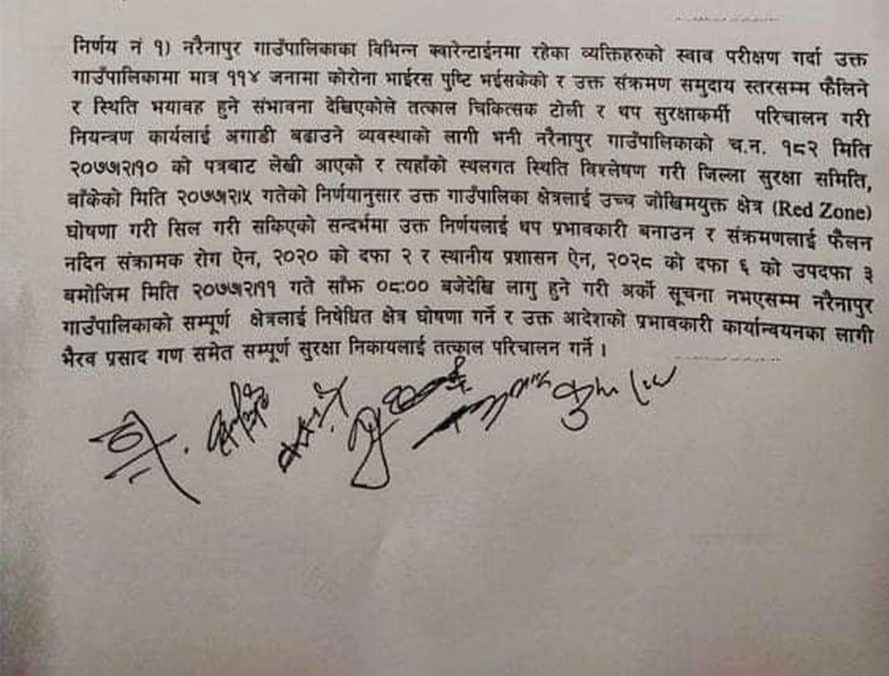 निर्णय नं १) नरैनापुर गाउँपालिकाका विभिन्न क्वारेन्टाईनमा रहेका व्यक्तिहरुको स्वाव परीक्षण गर्दा उक्त
गाउँपालिकामा मात्र ११४ जनामा कोरोना भाईरस पुष्टि भईसकेको र उक्त संक्रमण समुदाय स्तरसम्म फैलिने
र स्थिति भयावह हुने संभावना देखिएकोले तत्काल चिकित्सक टोली र थप सुरक्षाकर्मी परिचालन गरी
नियन्त्रण कार्यलाई अगाडी बढाउने व्यवस्थाको लागी भनी नरैनापुर गाउँपालिकाको च.न. १८२ मिति
२०७७।२।१० को पत्रबाट लेखी आएको र त्यहाँको स्थलगत स्थिति विश्लेषण गरी जिल्ला सुरक्षा समिति,
बाँकेको मिति २०७७।२।५ गतेको निर्णयानुसार उक्त गाउँपालिका क्षेत्रलाई उच्च जोखिमयुक्त क्षेत्र (Red Zone)
घोषणा गरी सिल गरी सकिएको सन्दर्भमा उक्त निर्णयलाई थप प्रभावकारी बनाउन र संक्रमणलाई फैलन
नदिन संक्रामक रोग ऐन, २०२० को दफा २ र स्थानीय प्रशासन ऐन, २०२८ को दफा ६ को उपदफा ३
बमोजिम मिति २०७७।२।११ गते साँझ ०८:०० बजेदेखि लागु हुने गरी अर्को सूचना नभएसम्म नरैनापुर
गाउँपालिकाको सम्पूर्ण क्षेत्रलाई निषेधित क्षेत्र घोषणा गर्ने र उक्त आदेशको प्रभावकारी कार्यान्वयनका लागी
भैरव प्रसाद गण समेत सम्पूर्ण सुरक्षा निकायलाई तत्काल परिचालन गर्ने ।